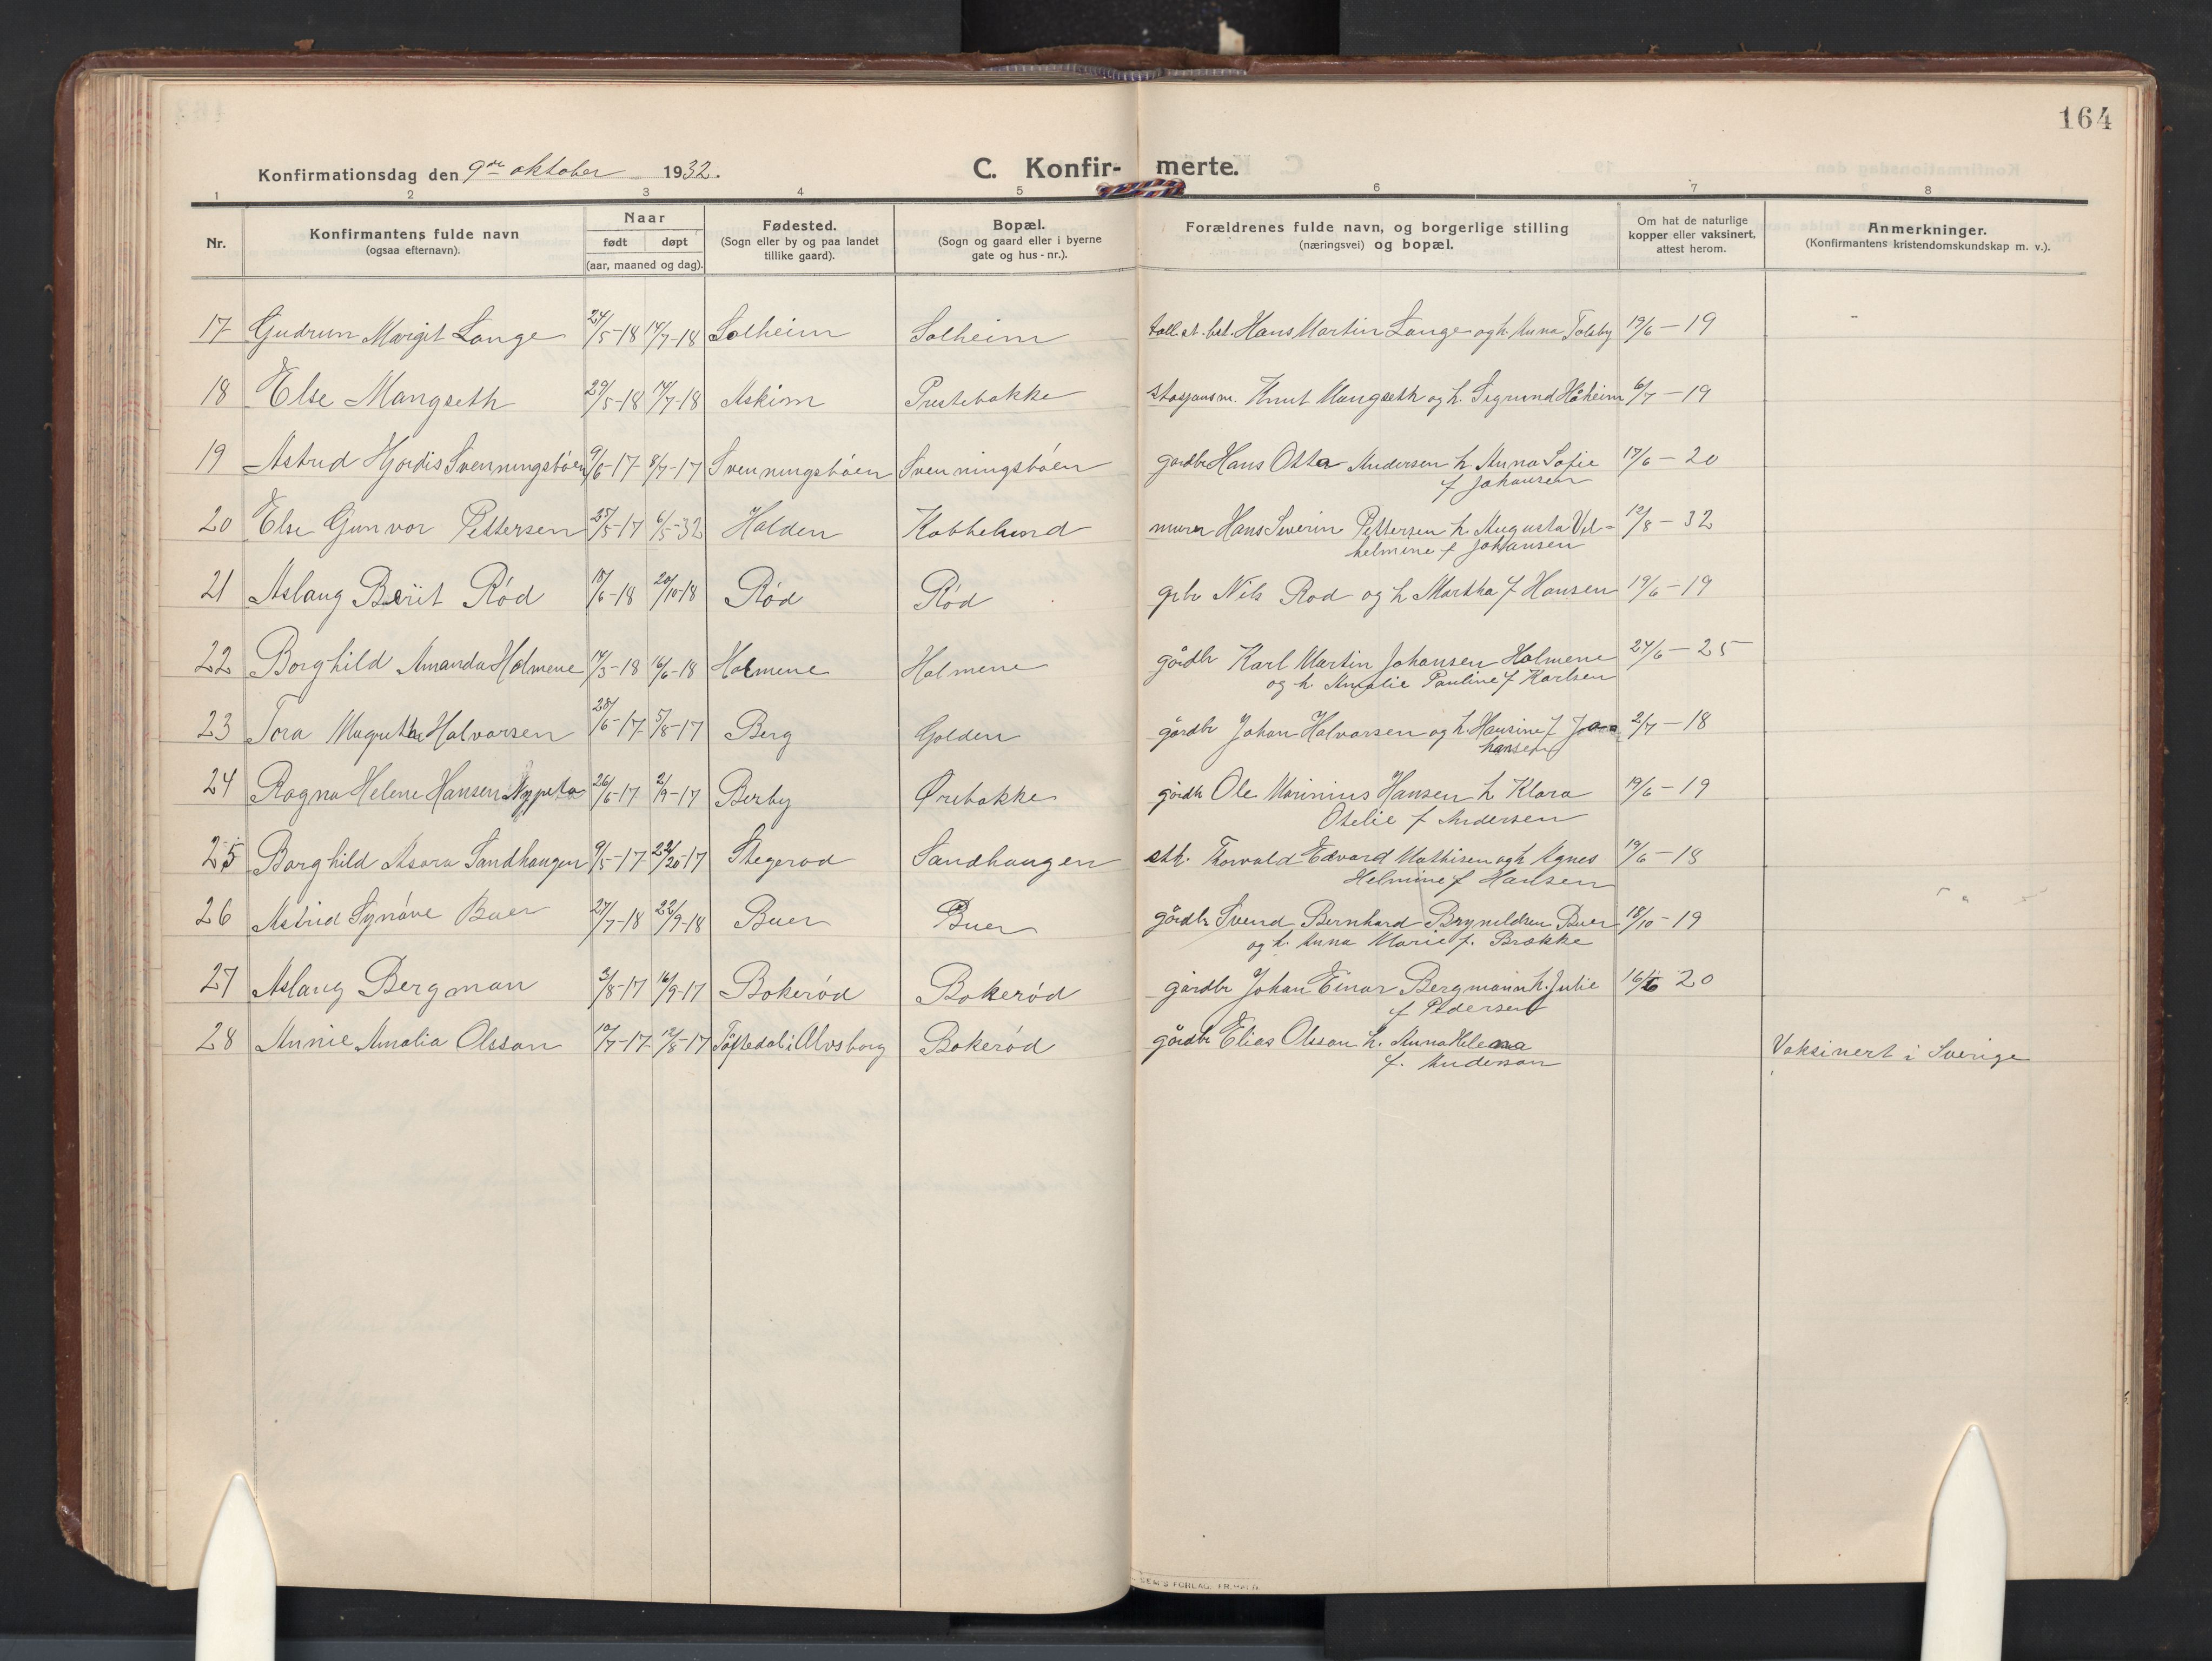 164
Konfirmationsdag den 9de oktober 1932.
C. Konfirmerte.
1 2 3 4 5 6 7 8
Nr.
Konfirmantens fulde navn
(ogsaa efternavn).
Naar
født døpt
(aar, maaned og dag).
Fødested.
(Sogn eller by og paa landet
tillike gaard).
Bopæl.
(Sogn og gaard eller i byerne
gate og hus-nr.).
Forældrenes fulde navn, og borgerlige stilling
(næringsvei) og bopæl.
Om hat de naturlige
kopper eller vaksinert,
attest herom.
Anmerkninger.
(Konfirmantens kristendomskundskap m. v.).
17 Gudrun Margit Lange 24/5-18 14/7-18 Solheim Solheim toll.st.bet. Hans Martin Lange og h. Anna Tolsby 19/6-19
18 Else Mangseth 29/5-18 14/7-18 Askim Prestebakke stasjonsm. Knut Mangseth og h. Sigrund Håheim 6/7-19
19 Astrid Hjørdis Svenningsbøen 9/6-17 8/7-17 Svenningsbøen Svenningsbøen gardbr Hans Otto Andersen h Anna Sofie 17/6-20
f Johansen
20 Else Gunvor Pettersen 25/5-17 6/5-32 Halden Kobbelund murer Hans Severin Pettersen h. Augusta Vil- 12/8-32
helmine f Johansen
21 Aslaug Berit Rød 18/6-18 20/10-18 Rød Rød gbr Nils Rød og h Martha f Hansen 19/6-19
22 Borghild Amanda Holmene 14/3-18 16/6-18 Holmene Holmene gårdbr Karl Martin Johansen Holmene 24/6-25
og h. Amalie Pauline f Karlsen
23 Tora Magrethe Halvorsen 28/6-17 5/8-17 Berg Golden gårdbr Johan Halvorsen og h. Hansine f Jo- 2/7-18
hansen
24 Ragna Helene Hansen 26/6-17 2/9-17 Berby Ørebakke gårdbr Ole Marinius Hansen h Klara 19/6-19
Otelie f Andersen
25 Borghild Asora Sandhaugen 9/5-17 Stegerød Sandhaugen Thorvald Edvard Mathisen og h Agnes 19/6-18
Helmine f Hansen
26 Astrid Synøve Buer 27/7-18 22/9-18 Buer Buer gårdbr Svend Bernhard Brynildsen Buer 18/10-19
og h. Anna Marie f. Brække
27 Aslaug Bergman 3/8-17 16/9-17 Bokerød Bokerød gårdbr Johan Einar Bergmann h. Julie 16/6 20
f Pedersen
28 Annie Amalia Olsson 10/7-17 12/8-17 Töftedal i Alvsborg Bokerød gårdbr Elias Olsson h. Anna Helena
f. Anderson
Vaksinert i Sverige